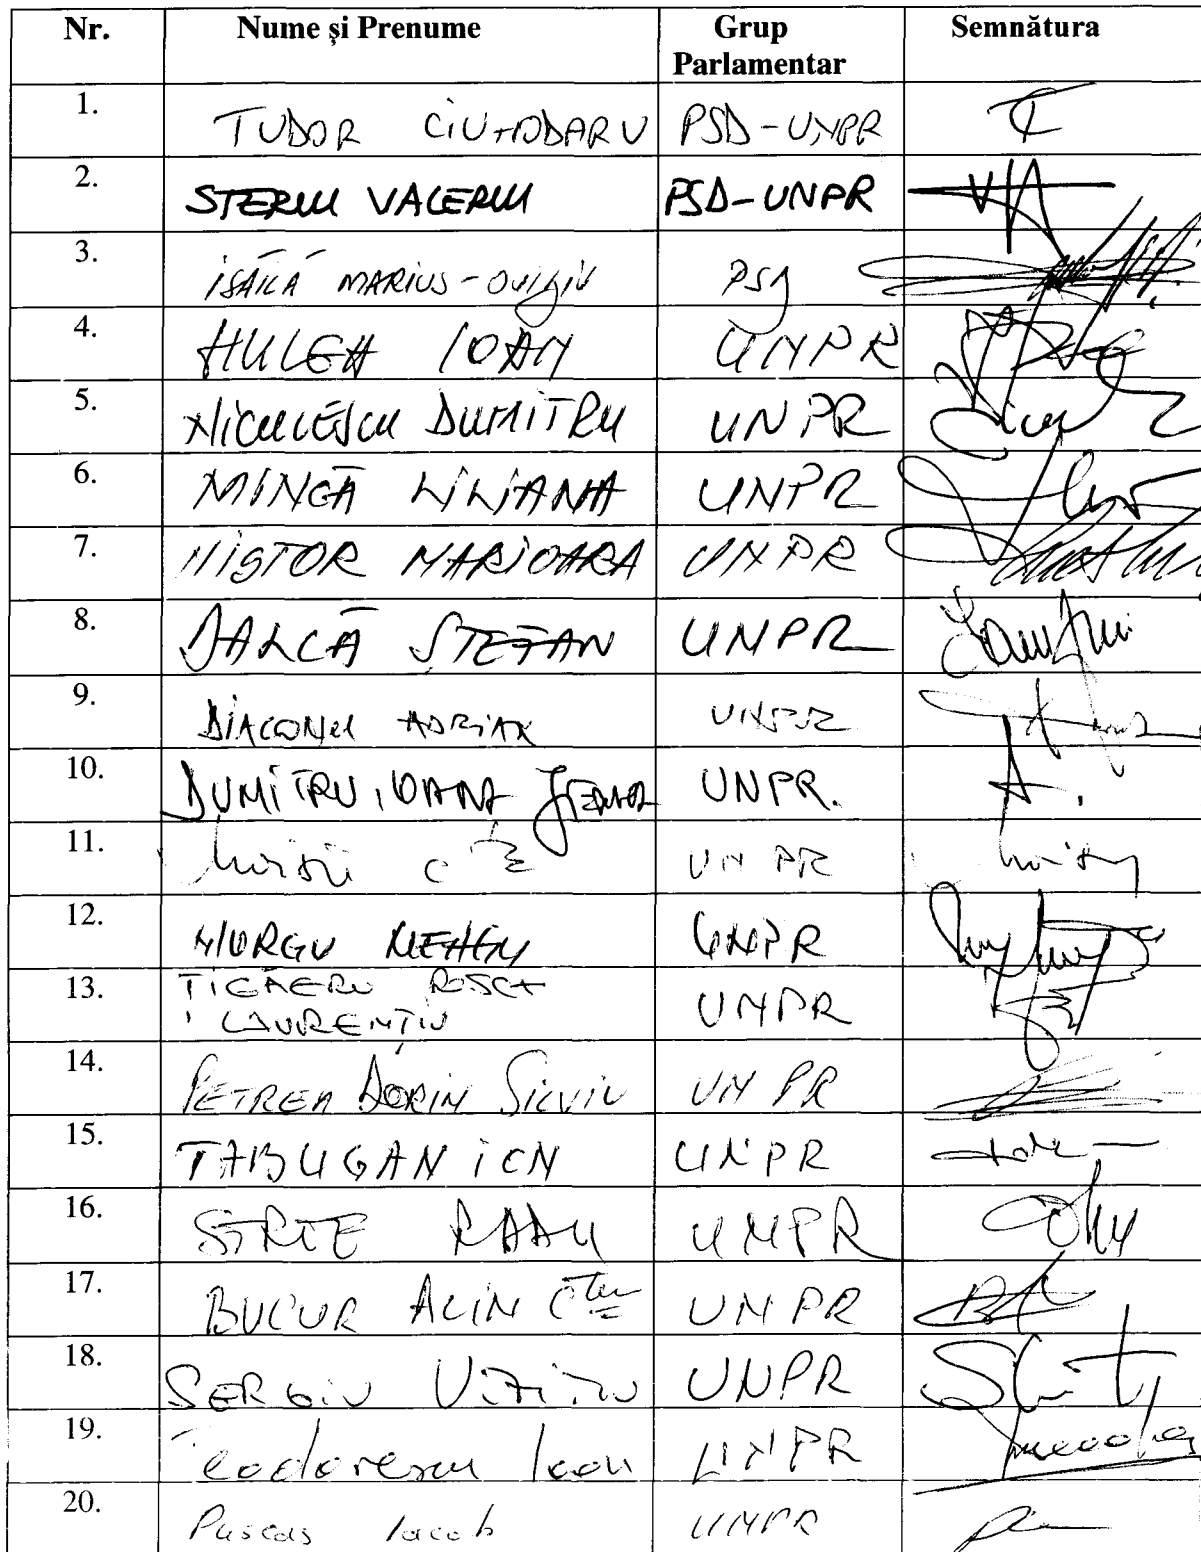 Nr. Nume și Prenume Grup Parlamentar Semnătura
1. TUDOR CIUHODARU PSD-UNPR
2. STERIU VALERIU PSD-UNPR
3. ISĂILĂ MARIUS-OVIDIU PSD
4. HULEA IOAN UNPR
5. NICULESCU DUMITRU UNPR
6. MINCĂ LILIANA UNPR
7. NISTOR MARIOARA UNPR
8. DALCĂ ȘTEFAN UNPR
9. DIACONU ADRIAN UNPR
10. DUMITRU IOANA UNPR.
11. UNPR
12. UNPR
13. ȚIGĂERU ROȘCA
LAURENȚIU UNPR
14. PETREA DORIN SILVIU UNPR
15. TABUGAN ION UNPR
16. RADU UNPR
17. BUCUR ALIN UNPR
18. SERGIU VIZITIU UNPR
19. Teodorescu Ioan UNPR
20. Pascas Iacob UNPR